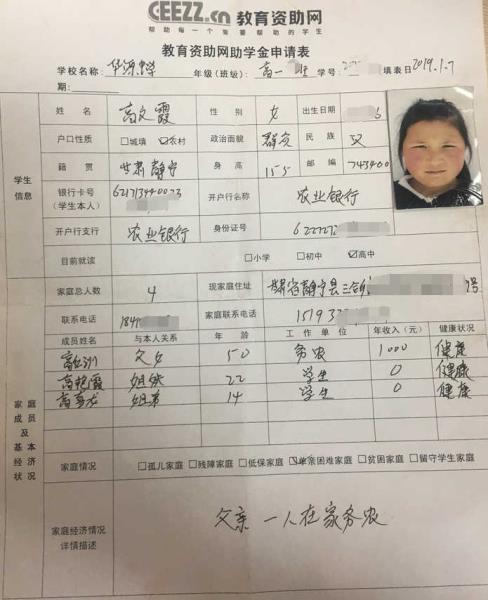 CEEZZ.cn 教育资助网
帮助每一个需要帮助的学生
教育资助网助学金申请表
学校名称: 年级(班级): 高一 班 学号: 填表日 2019.1.7
期:
姓名 高文霞 性别 女 出生日期
户口性质 □城填 ☑农村 政治面貌 群众 民族 汉
籍贯 甘肃静宁 身高 155 邮编 743400
学生
信息
银行卡号
(学生本人) 开户行名称 农业银行
开户行支行 农业银行 身份证号
目前就读 □小学 □初中 ☑高中
家庭总人数 4 现家庭住址 甘肃省静宁县三合 号
联系电话 家庭联系电话
成员姓名 与本人关系 年龄 工作单位 年收入(元) 健康状况
父女 50 务农 1000 健康
高艳霞 姐妹 22 学生 0 健康
姐弟 14 学生 0 健康
家庭
成员
及
基本
经济
状况
家庭情况 □孤儿家庭 □残障家庭 □低保家庭 ☑单亲困难家庭 □贫困家庭 □留守学生家庭
家庭经济情况
详情描述 父亲一人在家务农